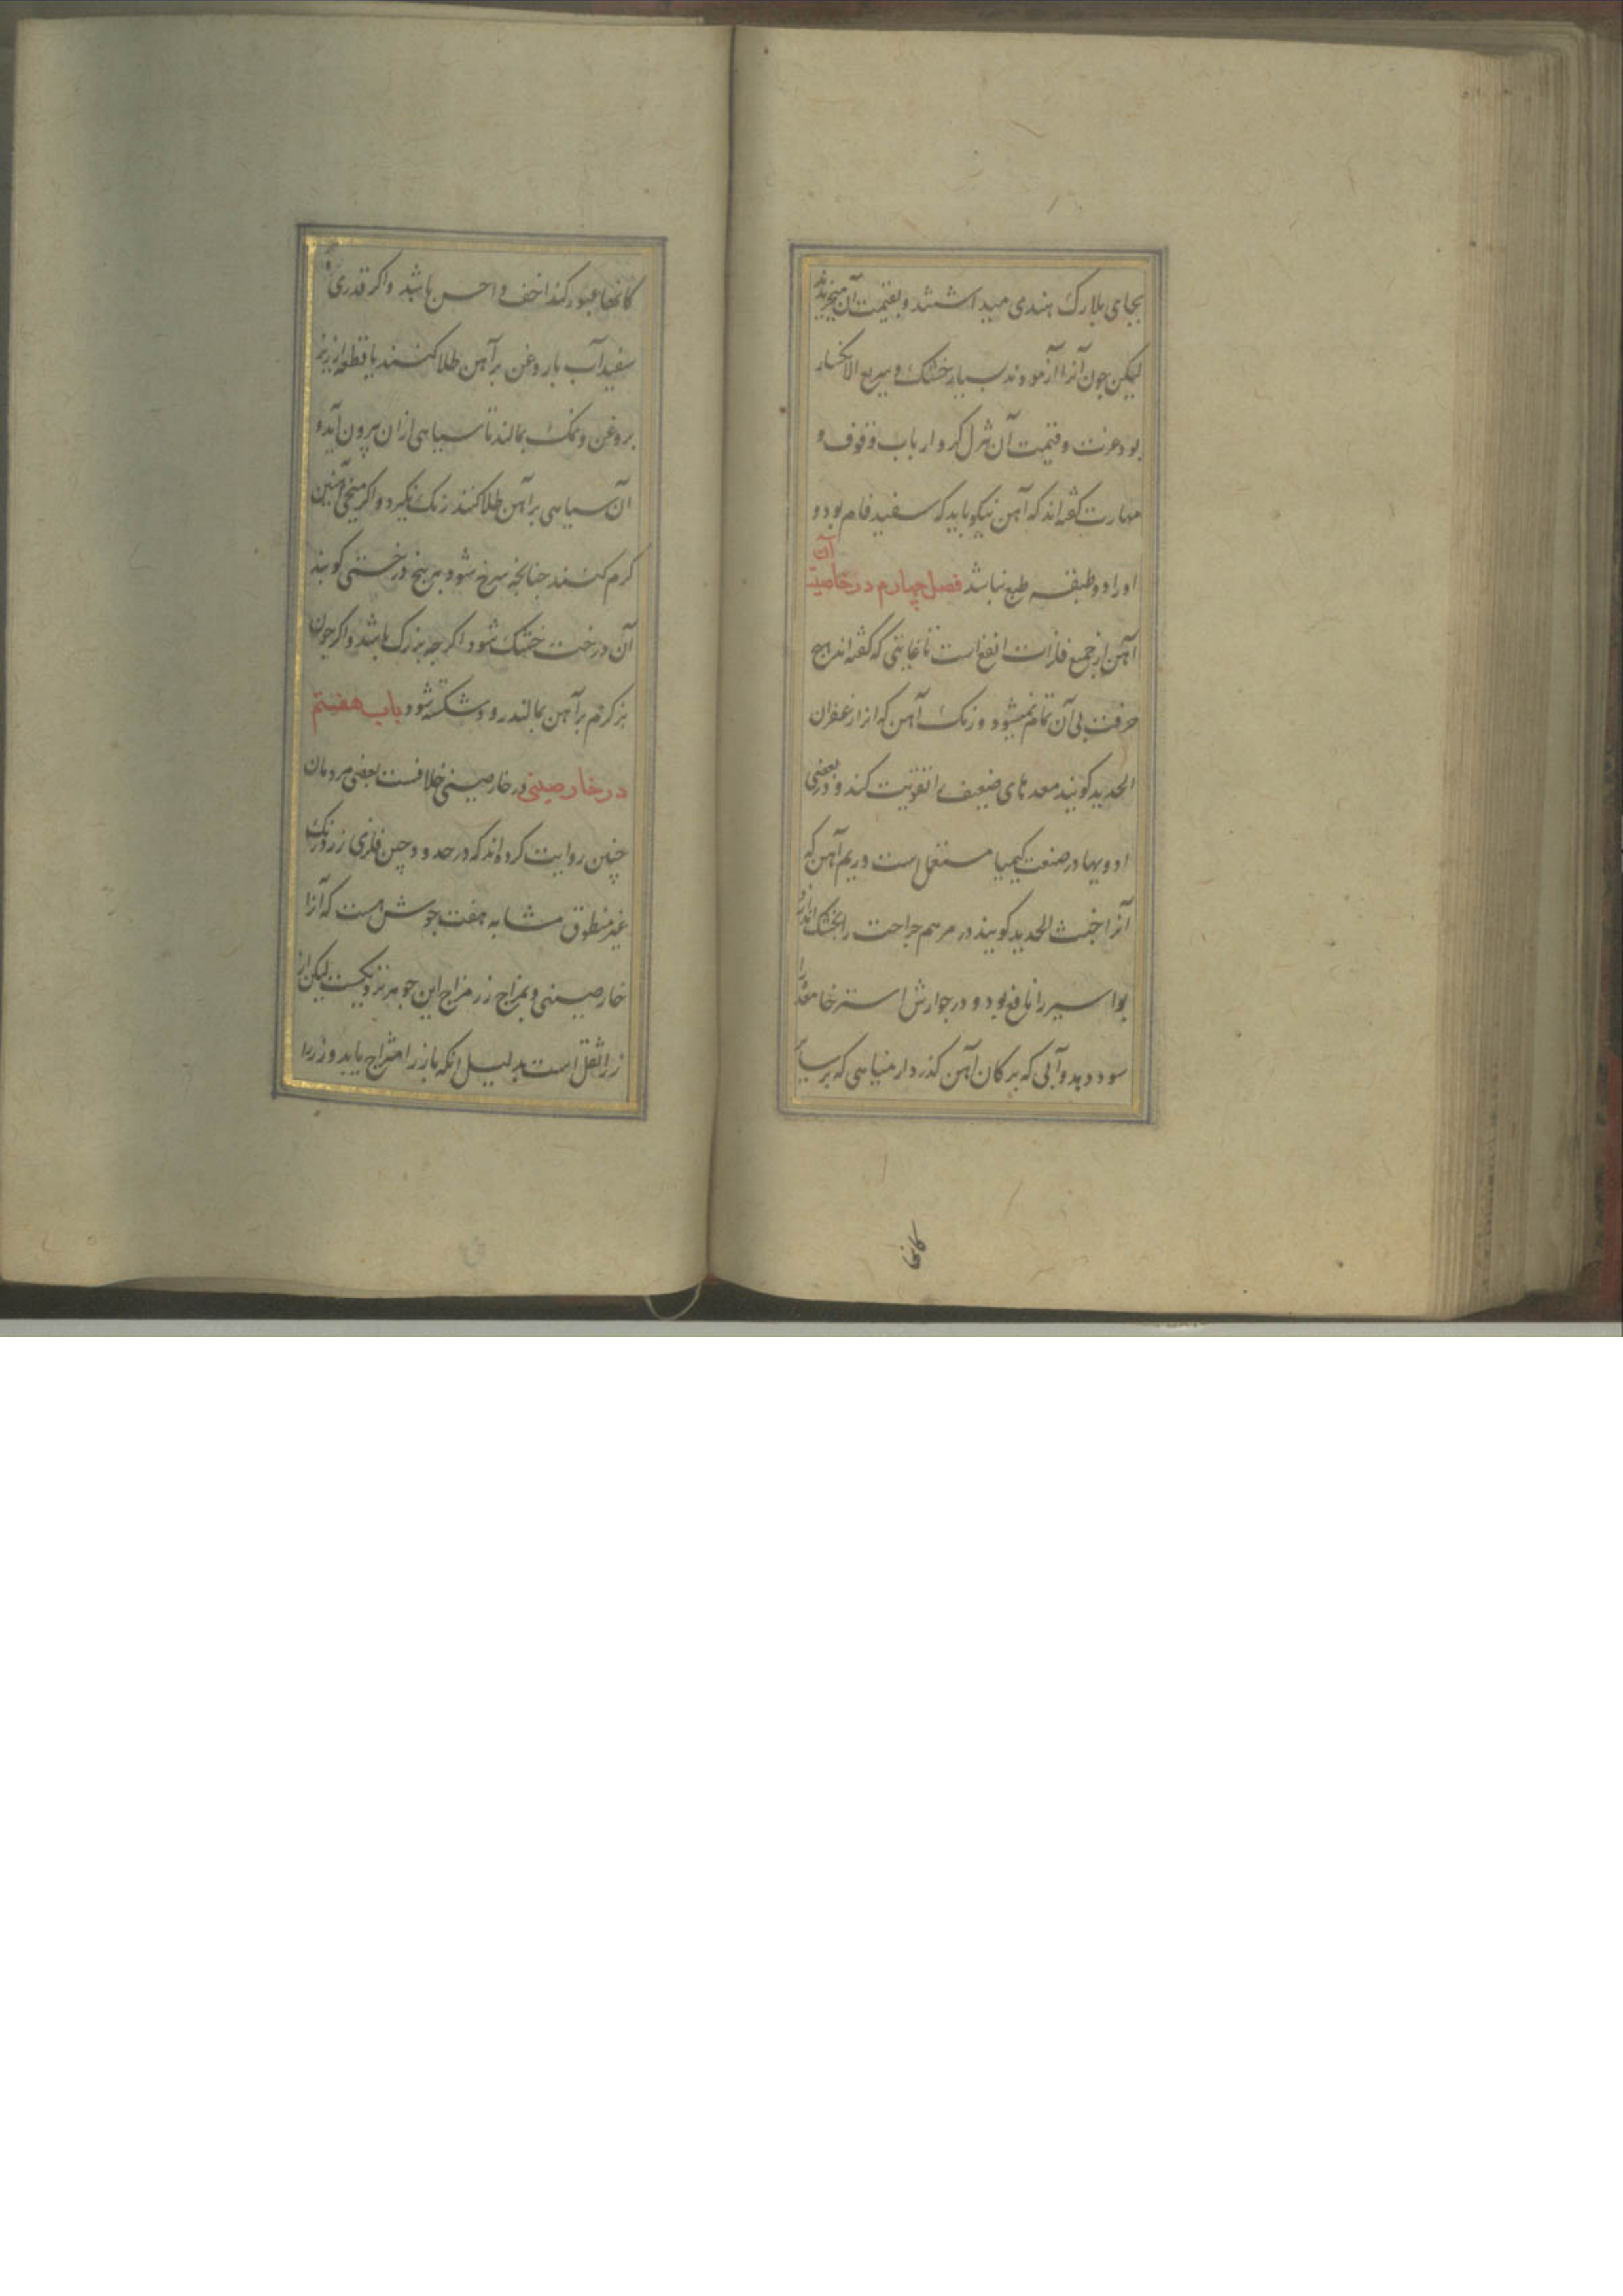 بجای بلارک هندی میداشتند و بقیمت آن میخریدند
لیکن جون آنرا آزمودند بسیار خشک و سریع الانکسار
بود عزت و قیمت آن تنزل کرد ارباب وقوف و
مهارت گفته‌اند که آهن نیکو باید که سفید فام بود و
او را وظیفه طبع نباشد فصل چهارم در خاصیت آن
آهن از جمیع فلزات انفع است تا غایتی که گفته‌اند هیچ
حرفت بی آن تمام نمیشود و زنک آهن که انرا زعفران
الحدید کویند معده‌های ضعیف را تقویت کند و در بعضی
ادویها در صنعت کیمیا مستعمل است و ریم آهن که
آنرا خبث الحدید کویند در مرهم جراحت را بخشک
بواسیر را نافع بود و در جوارش استرخا معده را
سود دهد و آبی که بر کان آهن کذر دارد میاهی که بر سایر
کانها
کانها عبور کند اخف و احسن باشد و اکر قدری
سفید آب با روغن بر آهن طلا کنند یا قطعه از زیر
بروغن و نمک بمالند تا سیاهی ازان بیرون آید و
ان سیاهی بر آهن طلا کنند زنک نکیرد و اکر میخی آهنین
کرم کنند جنانجه سرخ شود بر بیخ درختی کوبند
آن درخت خشک شود اکرچه بزرک باشد و اکر جون
بز کرم بر آهن بمالند زود شکسته شود باب هفتم
در خارصینی در خارصینی خلافست بعضی مردمان
چنین روایت کرده‌اند که در حدود چین فلزی زرد رنک
غیر منطوق مشابه هفت جوش هست که آنرا
خارصینی و بمزاج زر مزاج این جوهر نزدیکست لیکن از
زر اثقل است بدلیل انکه با زر امتزاج یابد و زر را